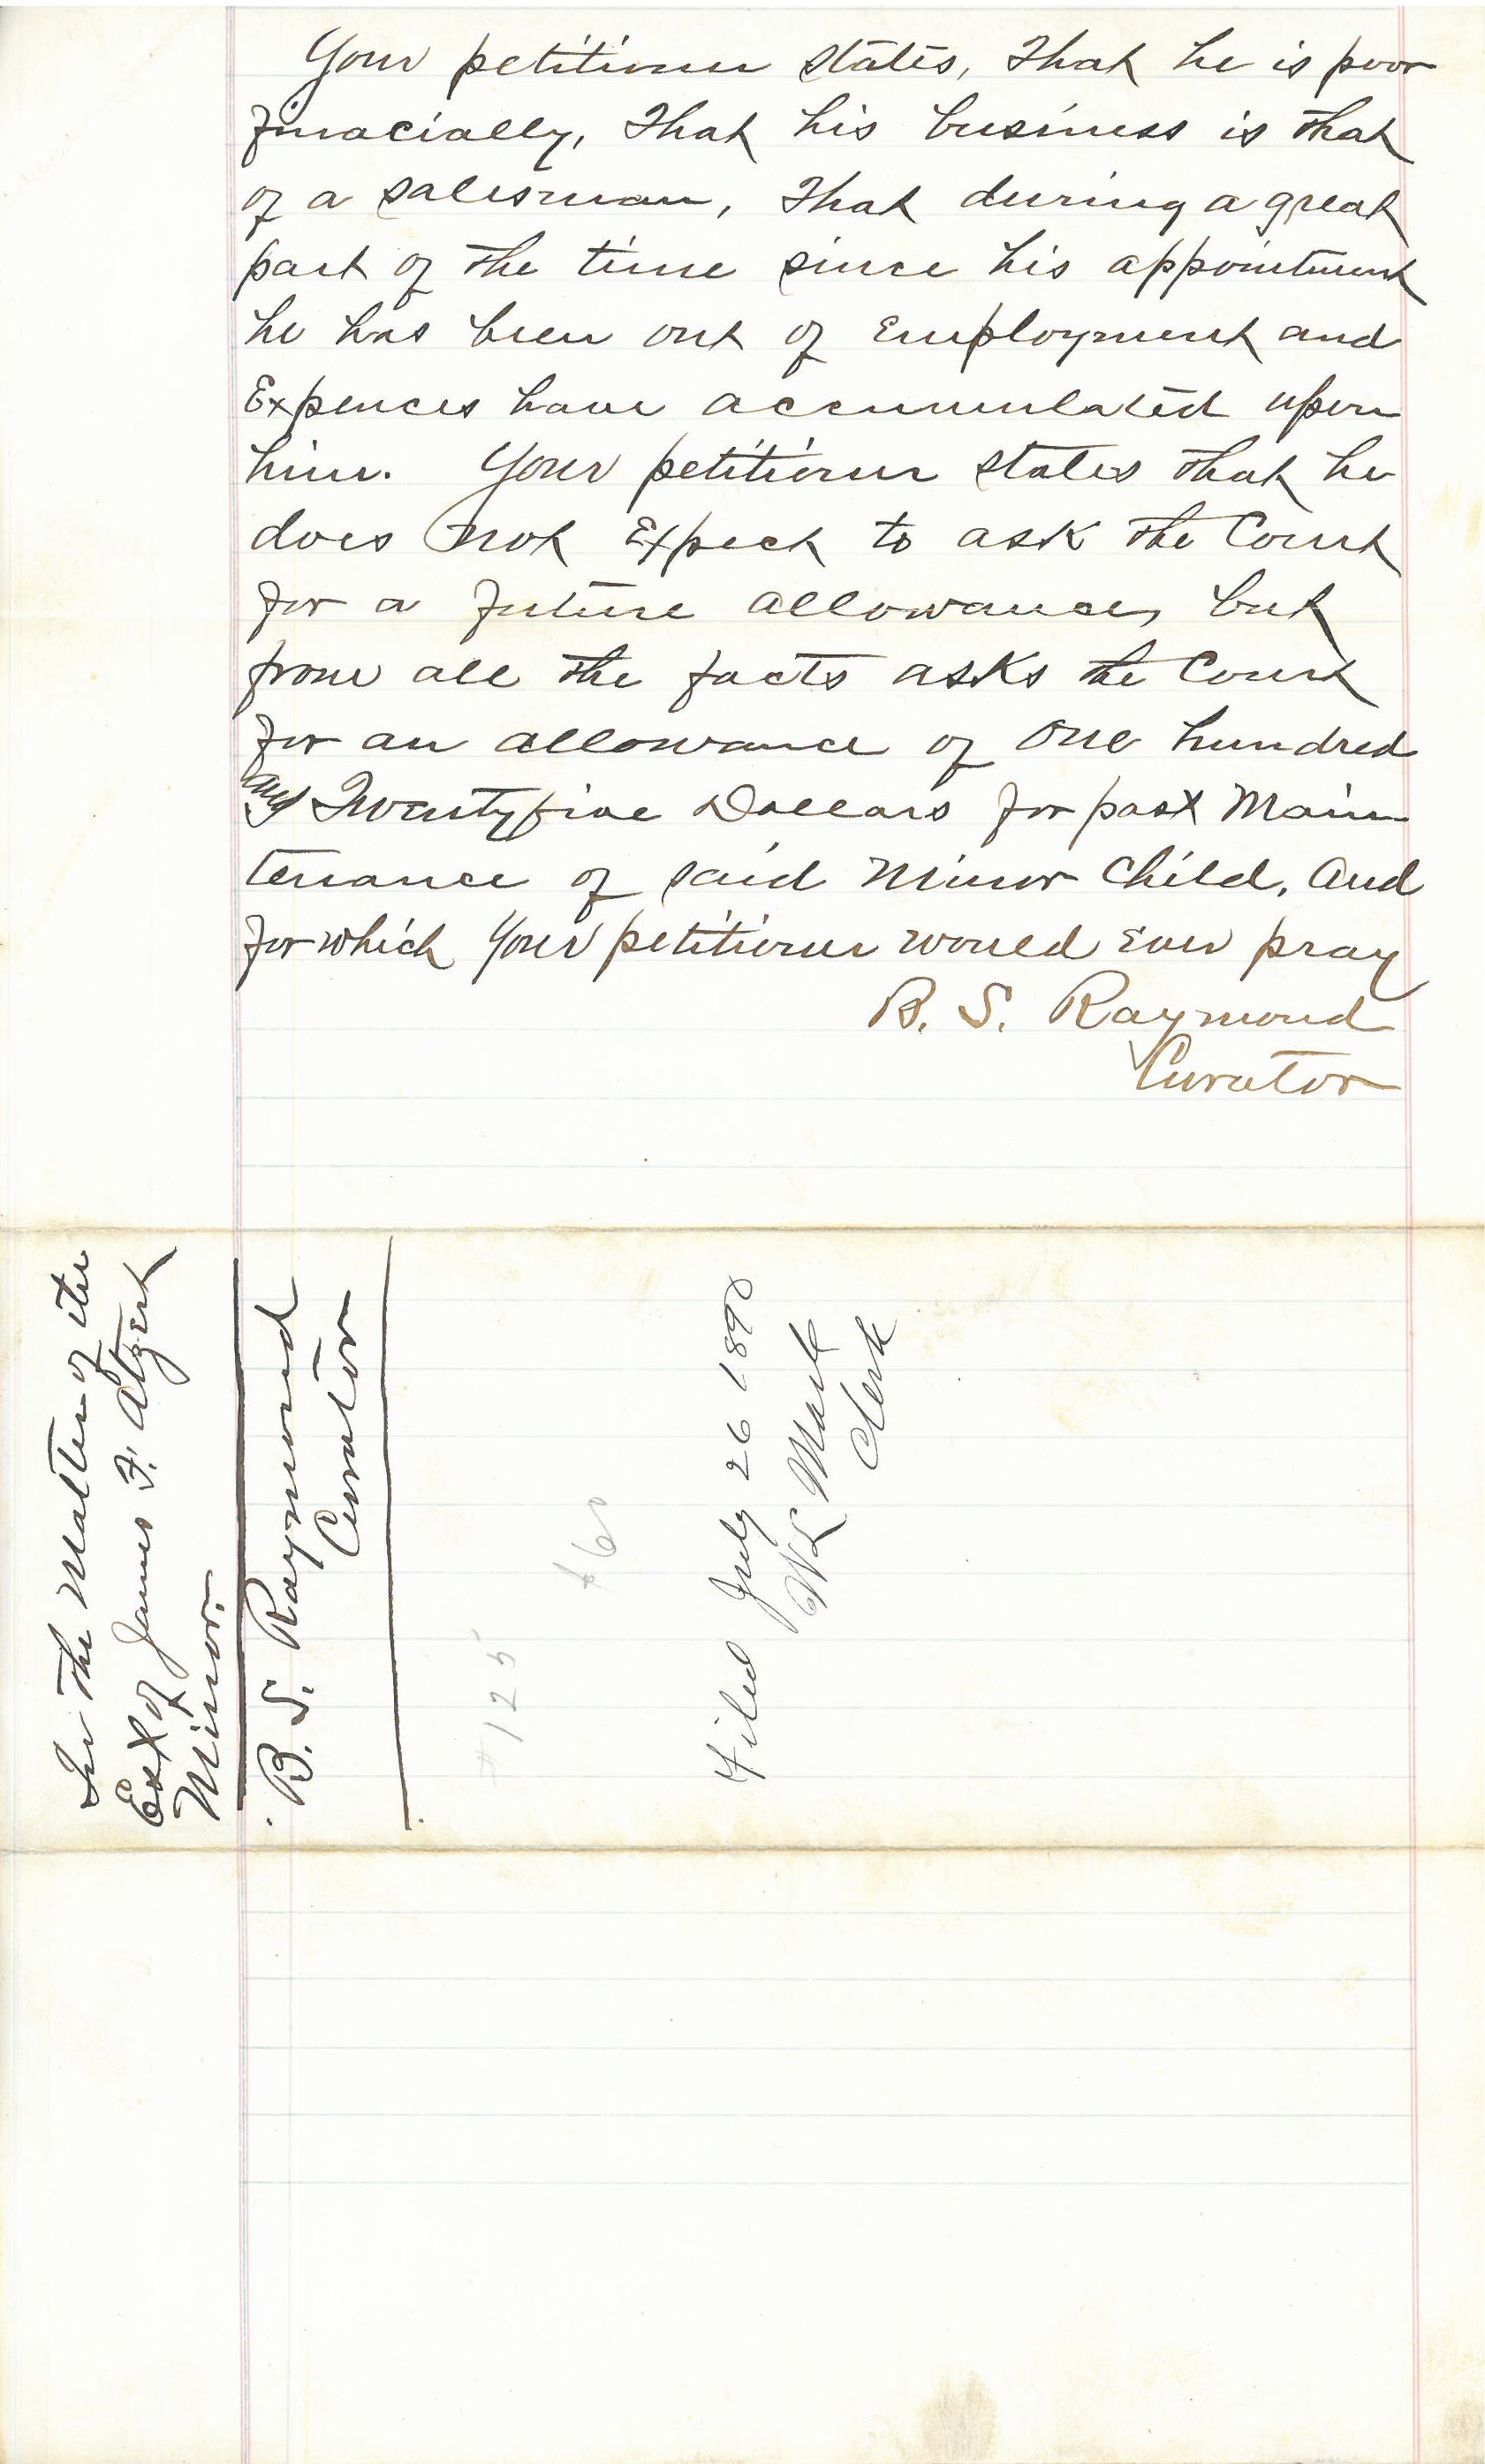 Your petitioner states, That he is poor
finacially, That his business is that
of a salesman, That during a great
part of the time since his appointment
he has been out of Employment and
Expences have accumulated upon
him. Your petitioner states that he
does not Expect to ask the Court
for a future allowance, but
from all the facts asks the Court
for an allowance of One hundred
and Twentyfive Dollars for past Main-
tenance of said Minor Child, And
for which Your petitioner would Ever pray
B. S. Raymond
Curator
In the Matter of the
Est of James F. Atzert
Minor.
B. S. Raymond
Curator
#125
Filed July 26 1890
W L
Clerk